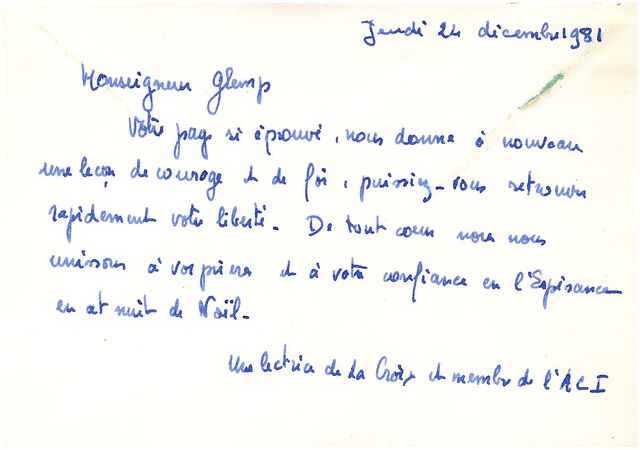 Jeudi 24 décembre 1981
Monseigneur Glemp
Votre pays si éprouvé, nous donne à nouveau
une leçon de courage et de foi, puissiez-vous retrouver
rapidement votre liberté. De tout coeur nous nous
unissons à vos prières et à votre confiance en l'Espérance
en cet nuit de Noël.
Une lectrice de La Croix et membre de l'ACI